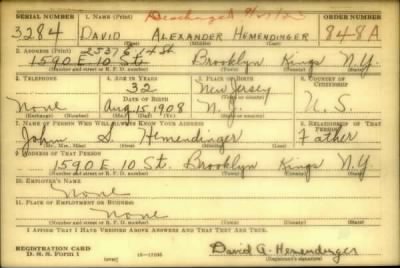 SERIAL NUMBER 1. NAME (Print) Discharged ORDER NUMBER
3284 DAVID ALEXANDER HEMENDINGER 848A
(First) (Middle) (Last)
2. ADDRESS (Print)
1590 E. 10 St. Brooklyn Kings N.Y.
(Number and street or R. F. D. number) (Town) (County) (State)
3. TELEPHONE 4. AGE IN YEARS 5. PLACE OF BIRTH 6. COUNTRY OF CITIZENSHIP
32 New Jersey
DATE OF BIRTH
None Aug. 15, 1908 N.J. U.S.
(Exchange) (Number) (Mo.) (Day) (Yr.)
7. NAME OF PERSON WHO WILL ALWAYS KNOW YOUR ADDRESS 8. RELATIONSHIP OF THAT PERSON
John S. Hemendinger Father
(Mr., Mrs., Miss) (First) (Middle) (Last)
9. ADDRESS OF THAT PERSON
1590 E. 10 St. Brooklyn Kings N.Y.
(Number and street or R. F. D. number) (Town) (County) (State)
10. EMPLOYER'S NAME
None
11. PLACE OF EMPLOYMENT OR BUSINESS
None
(Number and street or R. F. D. number) (Town) (County) (State)
I AFFIRM THAT I HAVE VERIFIED ABOVE ANSWERS AND THAT THEY ARE TRUE.
REGISTRATION CARD
D. S. S. FORM 1 (over) David A. Hemendinger
(Registrant's signature)